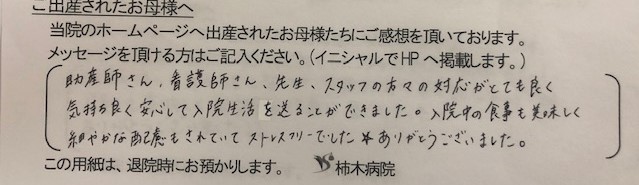 ご出産されたお母様へ
当院のホームページへ出産されたお母様たちにご感想を頂いております。
メッセージを頂ける方はご記入ください。(イニシャルでHPへ掲載します。)
助産師さん、看護師さん、先生、スタッフの方々の対応がとても良く
気持ち良く安心して入院生活を送ることができました。入院中の食事も美味しく
細やかな配慮もされていてストレスフリーでした★ありがとうございました。
この用紙は、退院時にお預かりします。 柿木病院